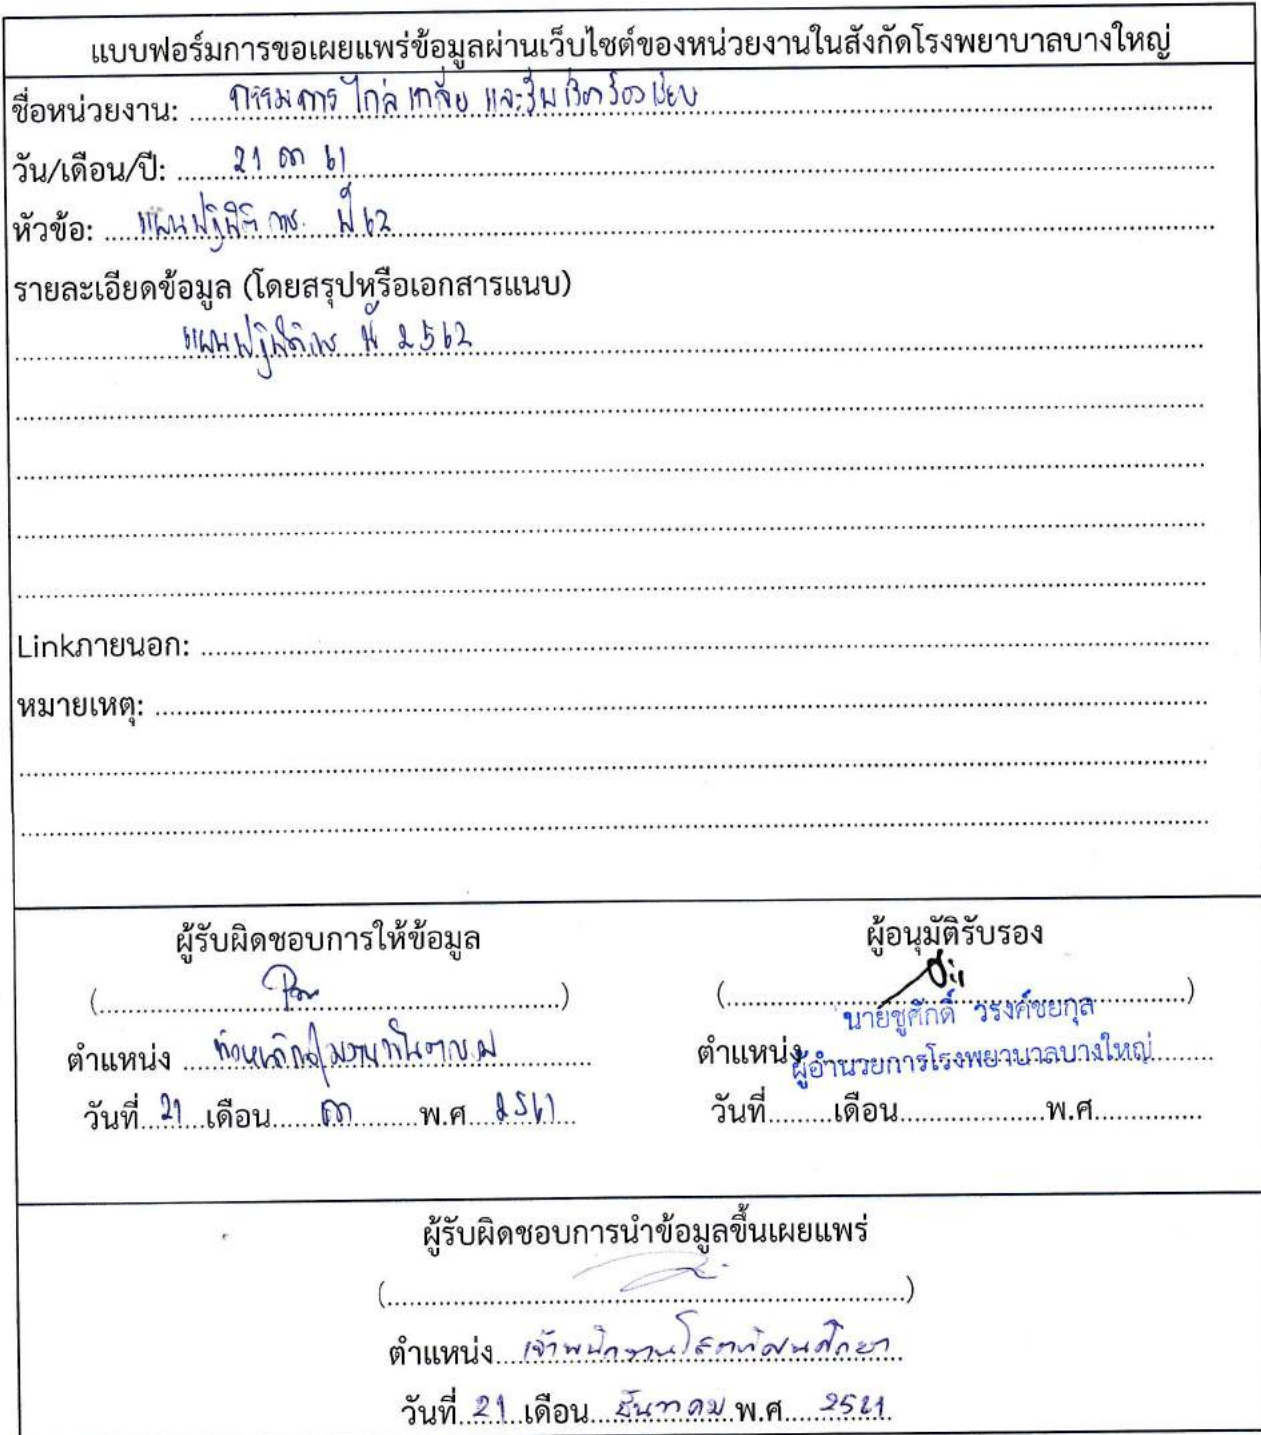 แบบฟอร์มการขอเผยแพร่ข้อมูลผ่านเว็บไซต์ของหน่วยงานในสังกัดโรงพยาบาลบางใหญ่
ชื่อหน่วยงาน: กรรมการ ไกล่เกลี่ย และรับเรื่องร้องเรียน
วัน/เดือน/ปี: 21 ธค 61
หัวข้อ: แผนปฏิบัติ การ ปี 62
รายละเอียดข้อมูล (โดยสรุปหรือเอกสารแนบ)
แผนปฏิบัติการ ปี 2562
Linkภายนอก:
หมายเหตุ:
ผู้รับผิดชอบการให้ข้อมูล ผู้อนุมัติรับรอง
นายชูศักดิ์ วรงค์ชยกุล
ตำแหน่ง หัวหน้ากลุ่มงาน ตำแหน่ง ผู้อำนวยการโรงพยาบาลบางใหญ่
วันที่ 21 เดือน ธค พ.ศ 2561 วันที่ เดือน พ.ศ
ผู้รับผิดชอบการนำข้อมูลขึ้นเผยแพร่
ตำแหน่ง เจ้าพนักงานโสตทัศนศึกษา
วันที่ 21 เดือน ธันวาคม พ.ศ 2561